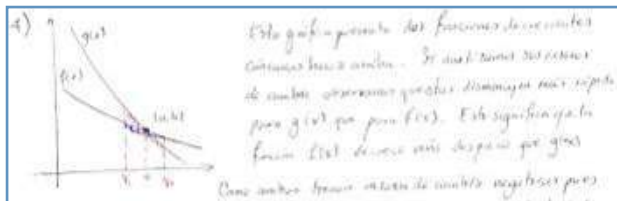 g(x)
f(x)
Esta gráfica presenta dos funciones decrecientes
cóncavas hacia arriba. Si analizamos sus razones
de cambio observamos que disminuyen más rápido
para g(x) que para f(x). Esto significa que la
función f(x) decrece más despacio que g(x)
Como ambas tienen razones de cambio negativas pues